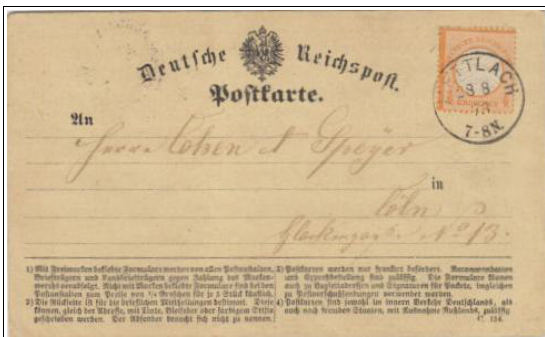 Deutsche Reichspost.
Postkarte.
An
Herren Cohen & Speyer
in
Cöln
Glockengasse No 13.
METTLACH
7-8N.
1) Mit Freimarken beklebte Formulare werden von allen Postanstalten, Briefträgern und Landbriefträgern gegen Zahlung des Markenwerths verabfolgt. Nicht mit Marken beklebte Formulare sind bei den Postanstalten zum Preise von ¼ Groschen für je 5 Stück käuflich.
2) Die Rückseite ist für die brieflichen Mittheilungen bestimmt. Diese können, gleich der Adresse, mit Tinte, Bleifeder oder farbigem Stifte geschrieben werden. Der Absender braucht sich nicht zu nennen.
3) Postkarten werden nur frankirt befördert. Recommandation und Expreßbestellung sind zulässig. Die Formulare können auch zu Begleitadressen und Signaturen für Packete, imgleichen zu Postvorschußsendungen verwendet werden.
4) Postkarten sind sowohl im innern Verkehr Deutschlands, als auch nach fremden Staaten, mit Ausnahme Rußlands, zulässig
C. 154.